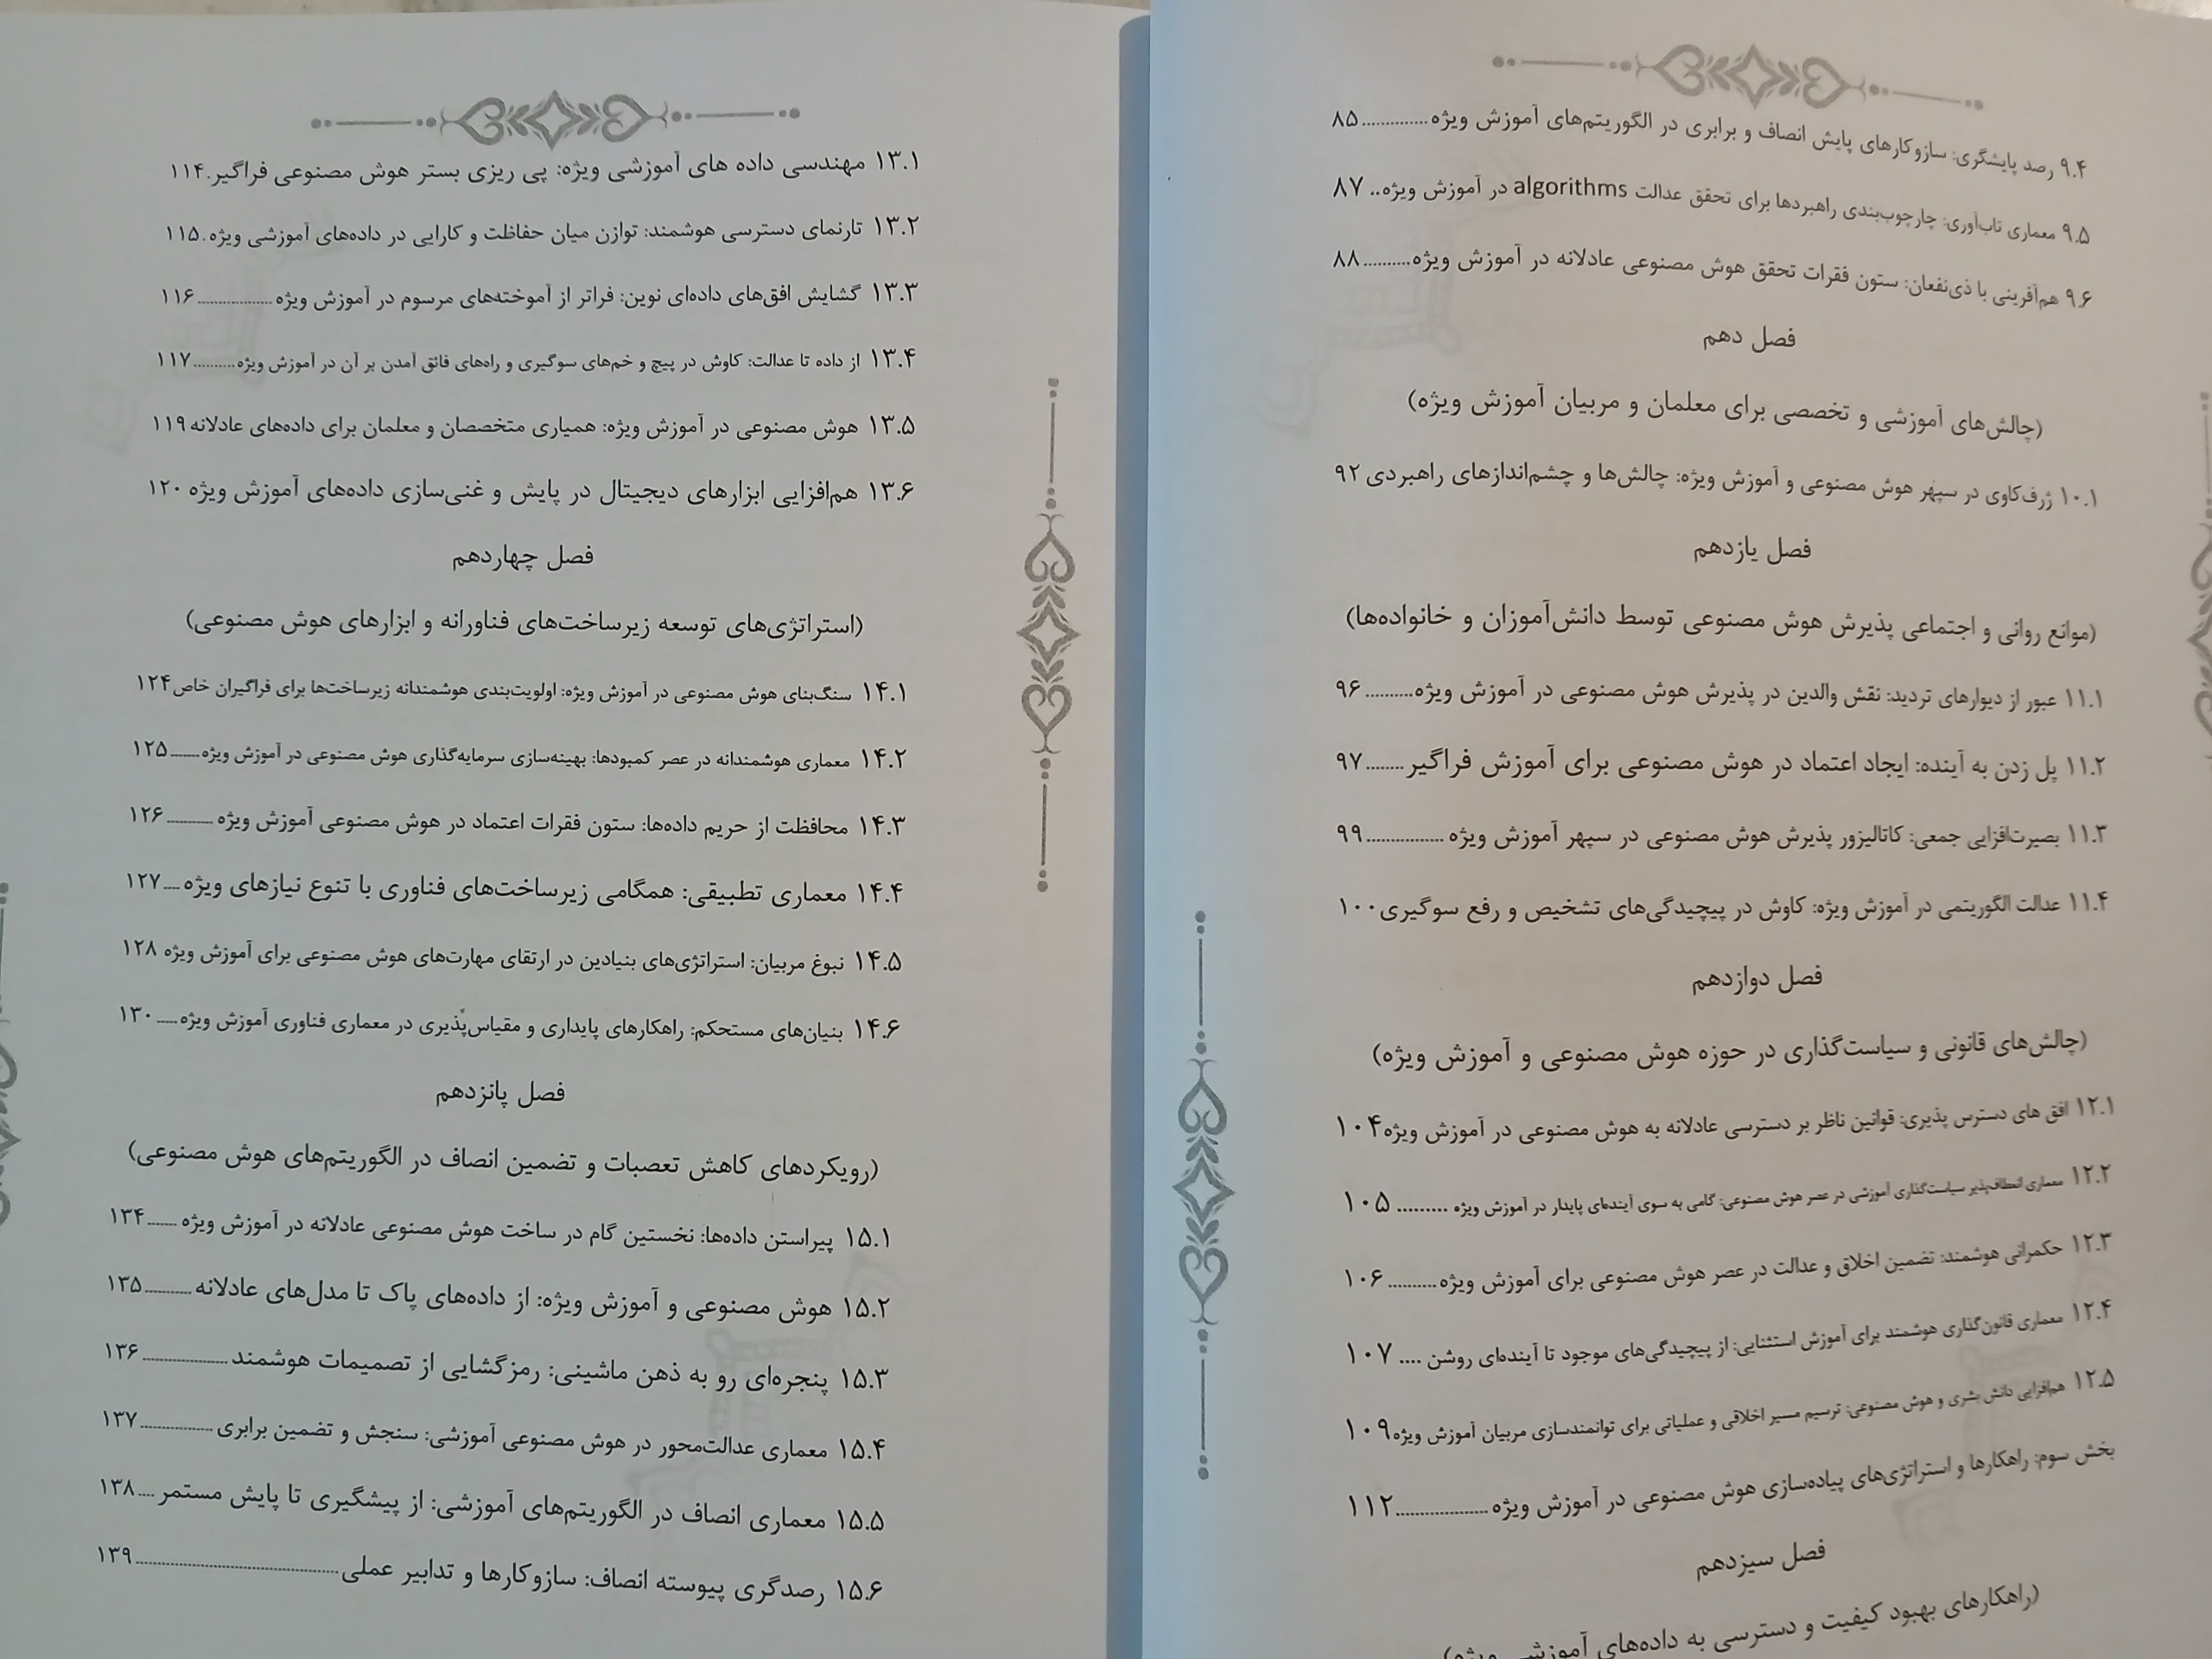 ۹.۴ رصد پایشگری: سازوکارهای پایش انصاف و برابری در الگوریتم‌های آموزش ویژه..............۸۵
۹.۵ معماری تاب‌آوری: چارچوب‌بندی راهبردها برای تحقق عدالت algorithms در آموزش ویژه..۸۷
۹.۶ هم‌آفرینی با ذی‌نفعان: ستون فقرات تحقق هوش مصنوعی عادلانه در آموزش ویژه..........۸۸
فصل دهم
(چالش‌های آموزشی و تخصصی برای معلمان و مربیان آموزش ویژه)
۱۰.۱ ژرف‌کاوی در سپهر هوش مصنوعی و آموزش ویژه: چالش‌ها و چشم‌اندازهای راهبردی ۹۲
فصل یازدهم
(موانع روانی و اجتماعی پذیرش هوش مصنوعی توسط دانش‌آموزان و خانواده‌ها)
۱۱.۱ عبور از دیوارهای تردید: نقش والدین در پذیرش هوش مصنوعی در آموزش ویژه..........۹۶
۱۱.۲ پل زدن به آینده: ایجاد اعتماد در هوش مصنوعی برای آموزش فراگیر........۹۷
۱۱.۳ بصیرت‌افزایی جمعی: کاتالیزور پذیرش هوش مصنوعی در سپهر آموزش ویژه ................۹۹
۱۱.۴ عدالت الگوریتمی در آموزش ویژه: کاوش در پیچیدگی‌های تشخیص و رفع سوگیری۱۰۰
فصل دوازدهم
(چالش‌های قانونی و سیاست‌گذاری در حوزه هوش مصنوعی و آموزش ویژه)
۱۲.۱ افق های دسترس پذیری: قوانین ناظر بر دسترسی عادلانه به هوش مصنوعی در آموزش ویژه۱۰۴
۱۲.۲ معماری انعطاف‌پذیر سیاست‌گذاری آموزشی در عصر هوش مصنوعی: گامی به سوی آینده‌ای پایدار در آموزش ویژه ......... ۱۰۵
۱۲.۳ حکمرانی هوشمند: تضمین اخلاق و عدالت در عصر هوش مصنوعی برای آموزش ویژه..........۱۰۶
۱۲.۴ معماری قانون‌گذاری هوشمند برای آموزش استثنایی: از پیچیدگی‌های موجود تا آینده‌ای روشن .... ۱۰۷
۱۲.۵ هم‌افزایی دانش بشری و هوش مصنوعی: ترسیم مسیر اخلاقی و عملیاتی برای توانمندسازی مربیان آموزش ویژه۱۰۹
بخش سوم: راهکارها و استراتژی‌های پیاده‌سازی هوش مصنوعی در آموزش ویژه ...................۱۱۲
فصل سیزدهم
(راهکارهای بهبود کیفیت و دسترسی به داده‌های آموزشی ویژه)
۱۳.۱ مهندسی داده های آموزشی ویژه: پی ریزی بستر هوش مصنوعی فراگیر.۱۱۴
۱۳.۲ تارنمای دسترسی هوشمند: توازن میان حفاظت و کارایی در داده‌های آموزشی ویژه.۱۱۵
۱۳.۳ گشایش افق‌های داده‌ای نوین: فراتر از آموخته‌های مرسوم در آموزش ویژه ..................۱۱۶
۱۳.۴ از داده تا عدالت: کاوش در پیچ و خم‌های سوگیری و راه‌های فائق آمدن بر آن در آموزش ویژه..........۱۱۷
۱۳.۵ هوش مصنوعی در آموزش ویژه: همیاری متخصصان و معلمان برای داده‌های عادلانه ۱۱۹
۱۳.۶ هم‌افزایی ابزارهای دیجیتال در پایش و غنی‌سازی داده‌های آموزش ویژه ۱۲۰
فصل چهاردهم
(استراتژی‌های توسعه زیرساخت‌های فناورانه و ابزارهای هوش مصنوعی)
۱۴.۱ سنگ‌بنای هوش مصنوعی در آموزش ویژه: اولویت‌بندی هوشمندانه زیرساخت‌ها برای فراگیران خاص ۱۲۴
۱۴.۲ معماری هوشمندانه در عصر کمبودها: بهینه‌سازی سرمایه‌گذاری هوش مصنوعی در آموزش ویژه.......۱۲۵
۱۴.۳ محافظت از حریم داده‌ها: ستون فقرات اعتماد در هوش مصنوعی آموزش ویژه ...........۱۲۶
۱۴.۴ معماری تطبیقی: همگامی زیرساخت‌های فناوری با تنوع نیازهای ویژه....۱۲۷
۱۴.۵ نبوغ مربیان: استراتژی‌های بنیادین در ارتقای مهارت‌های هوش مصنوعی برای آموزش ویژه ۱۲۸
۱۴.۶ بنیان‌های مستحکم: راهکارهای پایداری و مقیاس‌پذیری در معماری فناوری آموزش ویژه.....۱۳۰
فصل پانزدهم
(رویکردهای کاهش تعصبات و تضمین انصاف در الگوریتم‌های هوش مصنوعی)
۱۵.۱ پیراستن داده‌ها: نخستین گام در ساخت هوش مصنوعی عادلانه در آموزش ویژه .......۱۳۴
۱۵.۲ هوش مصنوعی و آموزش ویژه: از داده‌های پاک تا مدل‌های عادلانه ...........۱۳۵
۱۵.۳ پنجره‌ای رو به ذهن ماشینی: رمزگشایی از تصمیمات هوشمند .....................۱۳۶
۱۵.۴ معماری عدالت‌محور در هوش مصنوعی آموزشی: سنجش و تضمین برابری ..................۱۳۷
۱۵.۵ معماری انصاف در الگوریتم‌های آموزشی: از پیشگیری تا پایش مستمر ....۱۳۸
۱۵.۶ رصدگری پیوسته انصاف: سازوکارها و تدابیر عملی..................................................۱۳۹